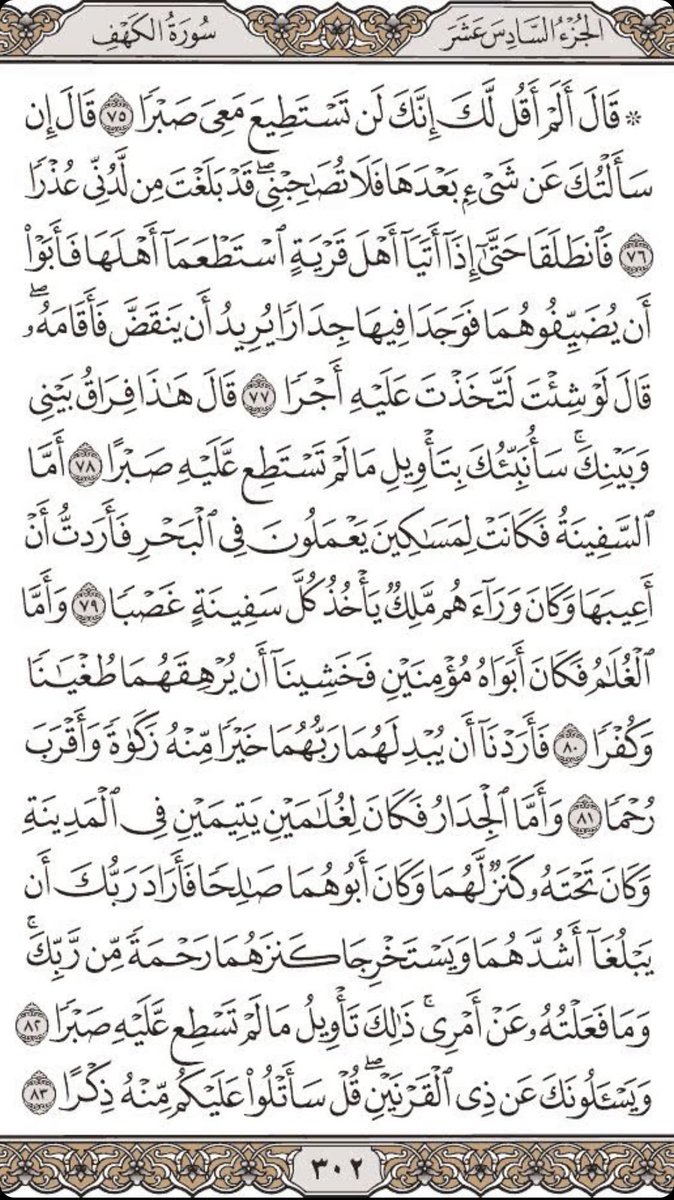 الجزء السادس عشر
سورة الكهف
۞ قَالَ أَلَمْ أَقُل لَّكَ إِنَّكَ لَن تَسْتَطِيعَ مَعِىَ صَبْرًا ٧٥ قَالَ إِن
سَأَلْتُكَ عَن شَىْءٍۭ بَعْدَهَا فَلَا تُصَـٰحِبْنِى ۖ قَدْ بَلَغْتَ مِن لَّدُنِّى عُذْرًا
٧٦ فَٱنطَلَقَا حَتَّىٰٓ إِذَآ أَتَيَآ أَهْلَ قَرْيَةٍ ٱسْتَطْعَمَآ أَهْلَهَا فَأَبَوْا۟
أَن يُضَيِّفُوهُمَا فَوَجَدَا فِيهَا جِدَارًا يُرِيدُ أَن يَنقَضَّ فَأَقَامَهُۥ ۖ
قَالَ لَوْ شِئْتَ لَتَّخَذْتَ عَلَيْهِ أَجْرًا ٧٧ قَالَ هَـٰذَا فِرَاقُ بَيْنِى
وَبَيْنِكَ ۚ سَأُنَبِّئُكَ بِتَأْوِيلِ مَا لَمْ تَسْتَطِع عَّلَيْهِ صَبْرًا ٧٨ أَمَّا
ٱلسَّفِينَةُ فَكَانَتْ لِمَسَـٰكِينَ يَعْمَلُونَ فِى ٱلْبَحْرِ فَأَرَدتُّ أَنْ
أَعِيبَهَا وَكَانَ وَرَآءَهُم مَّلِكٌ يَأْخُذُ كُلَّ سَفِينَةٍ غَصْبًا ٧٩ وَأَمَّا
ٱلْغُلَـٰمُ فَكَانَ أَبَوَاهُ مُؤْمِنَيْنِ فَخَشِينَآ أَن يُرْهِقَهُمَا طُغْيَـٰنًا
وَكُفْرًا ٨٠ فَأَرَدْنَآ أَن يُبْدِلَهُمَا رَبُّهُمَا خَيْرًا مِّنْهُ زَكَوٰةً وَأَقْرَبَ
رُحْمًا ٨١ وَأَمَّا ٱلْجِدَارُ فَكَانَ لِغُلَـٰمَيْنِ يَتِيمَيْنِ فِى ٱلْمَدِينَةِ
وَكَانَ تَحْتَهُۥ كَنزٌ لَّهُمَا وَكَانَ أَبُوهُمَا صَـٰلِحًا فَأَرَادَ رَبُّكَ أَن
يَبْلُغَآ أَشُدَّهُمَا وَيَسْتَخْرِجَا كَنزَهُمَا رَحْمَةً مِّن رَّبِّكَ ۚ
وَمَا فَعَلْتُهُۥ عَنْ أَمْرِى ۚ ذَٰلِكَ تَأْوِيلُ مَا لَمْ تَسْطِع عَّلَيْهِ صَبْرًا ٨٢
وَيَسْـَٔلُونَكَ عَن ذِى ٱلْقَرْنَيْنِ ۖ قُلْ سَأَتْلُوا۟ عَلَيْكُم مِّنْهُ ذِكْرًا ٨٣
٣٠٢